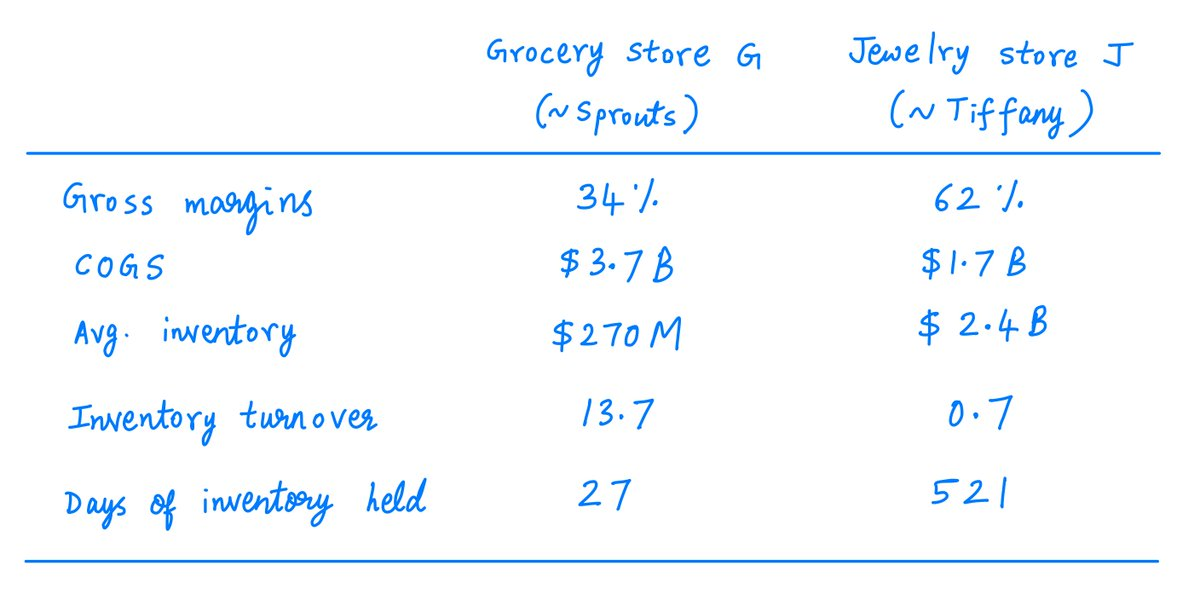 Grocery store G Jewelry store J
(~ Sprouts) (~ Tiffany)
Gross margins 34% 62%
COGS $3.7 B $1.7 B
Avg. inventory $270 M $2.4 B
Inventory turnover 13.7 0.7
Days of inventory held 27 521